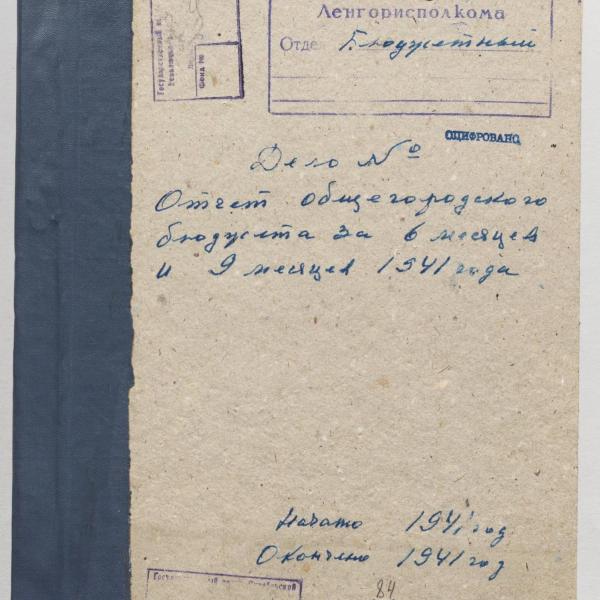 Ленгорисполкома
Отдел Бюджетный
Государственный
Фонд №
ОЦИФРОВАНО
Дело №
Отчет общегородского
бюджета за 6 месяцев
и 9 месяцев 1941 года
Начато 1941 год
Окончено 1941 год
84